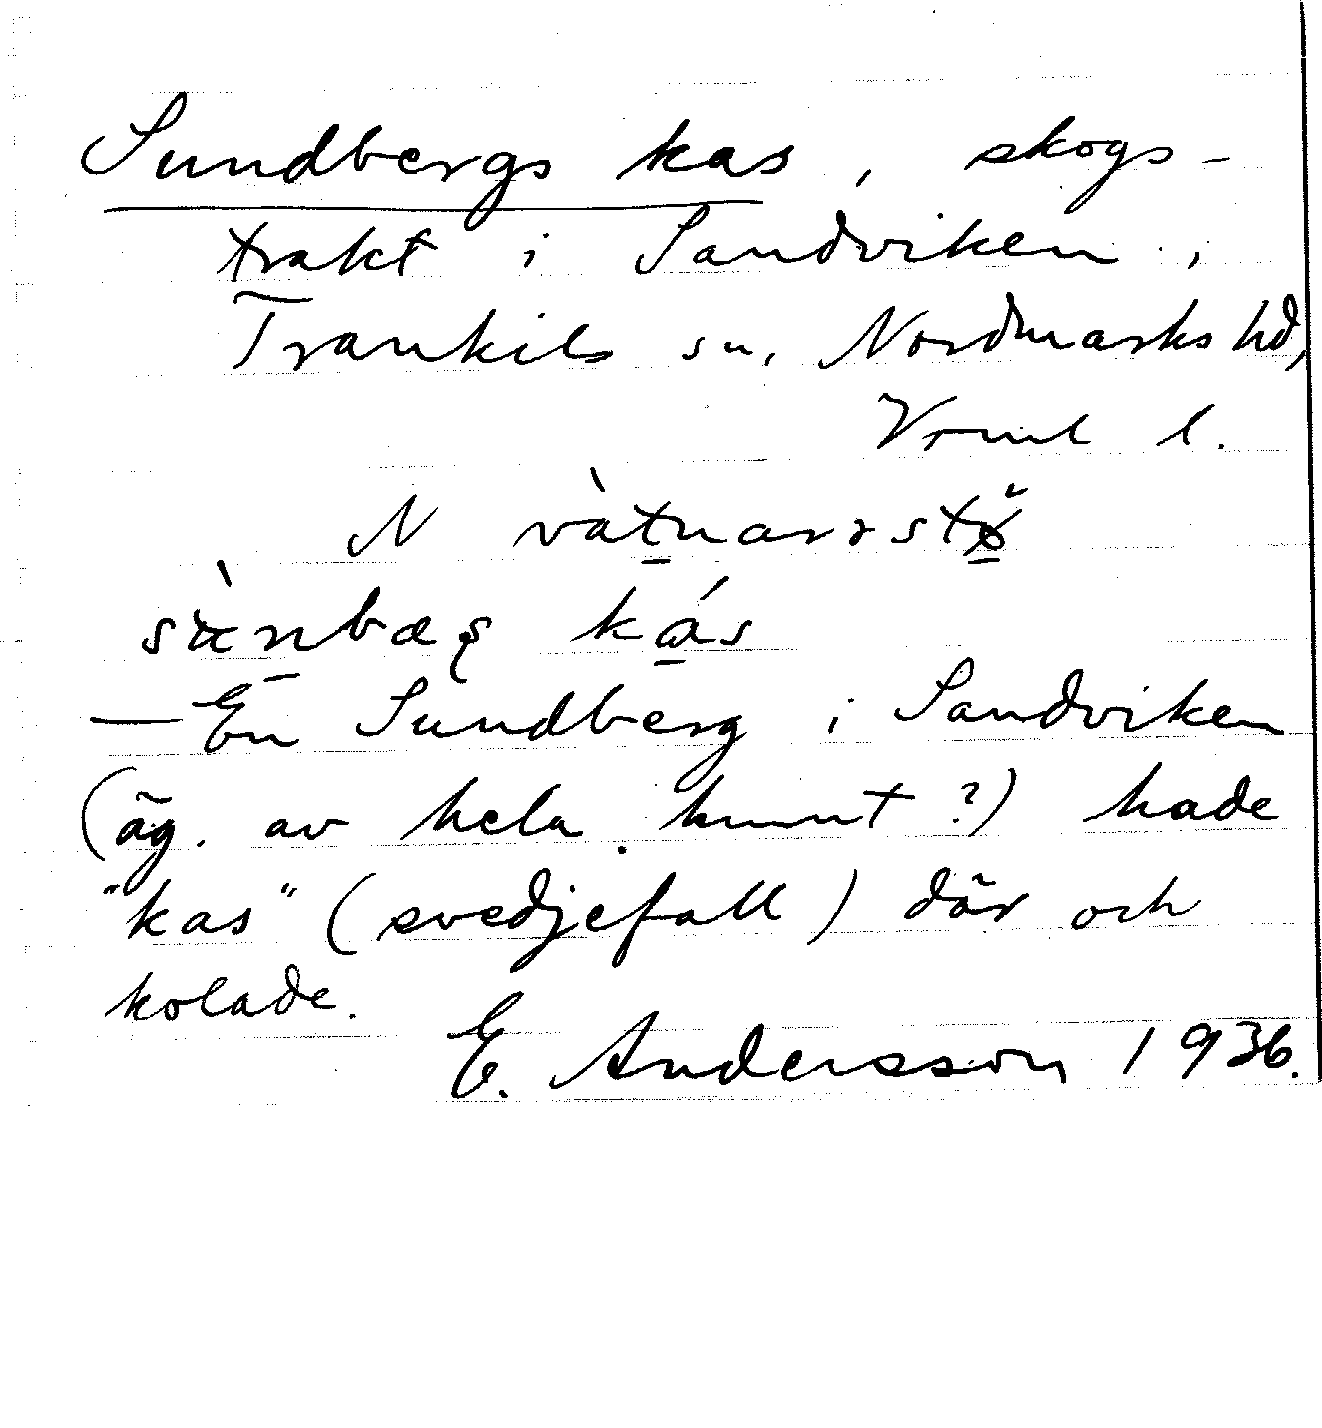 Sundbergs kas, skogs-
trakt i Sandviken,
Trankils sn, Nordmarks hd,
Vrml l.
N
kás
— En Sundberg i Sandviken
(äg. av hela hmnt?) hade
"kas" (svedjefall) där och
kolade.
E. Andersson 1936.